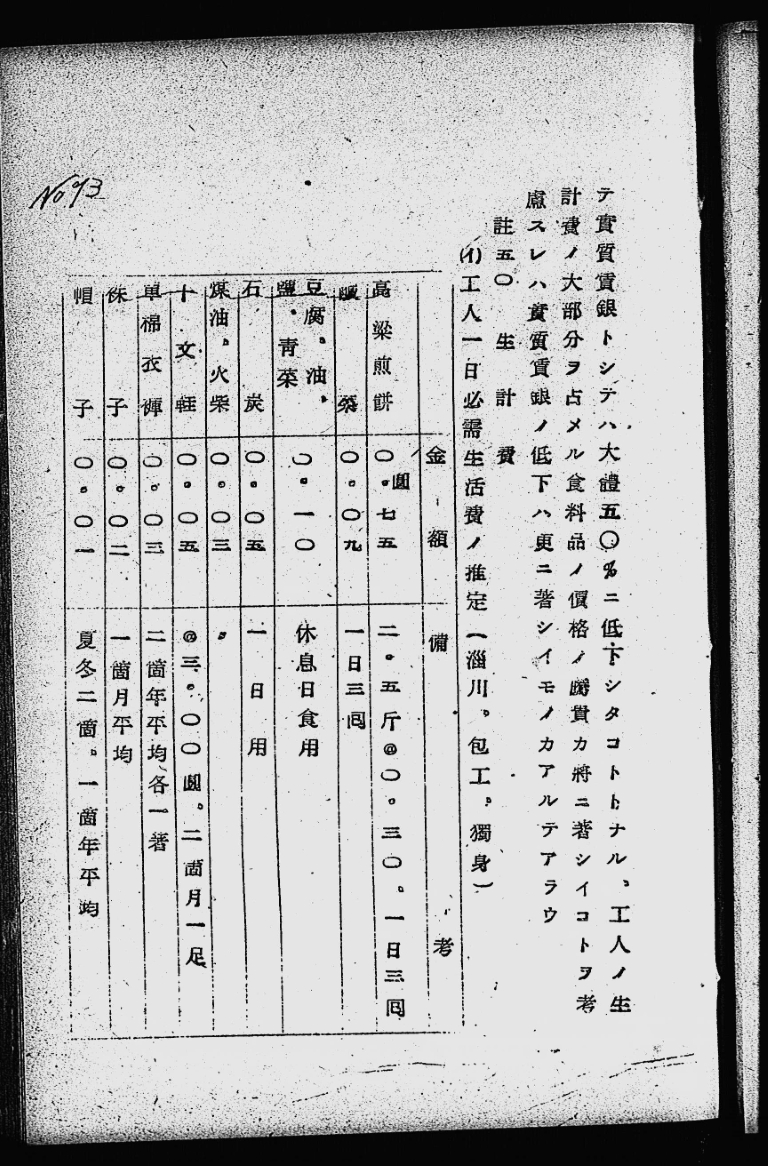 No 93
テ實質賃銀トシテハ大體五〇％ニ低下シタコトトナル、工人ノ生
計費ノ大部分ヲ占メル食料品ノ價格ノ騰貴カ將ニ著シイコトヲ考
慮スレハ實質賃銀ノ低下ハ更ニ著シイモノカアルテアラウ
註五〇 生計費
(イ)工人一日必需生活費ノ推定（淄川。包工。獨身）
金額 備考
高粱煎餅 〇。七五圓 二。五斤@〇。三〇。一日三囘
鹹菜 〇。〇九 一日三囘
豆腐。油。鹽。青菜 〇。一〇 休息日食用
石炭 〇。〇五 一日用
煤油。火柴 〇。〇三 〃
十文鞋 〇。〇五 @三。〇〇圓。二箇月一足
單棉衣褲 〇。〇三 二箇年平均各一著
襪子 〇。〇二 一箇月平均
帽子 〇。〇一 夏冬二箇。一箇年平均